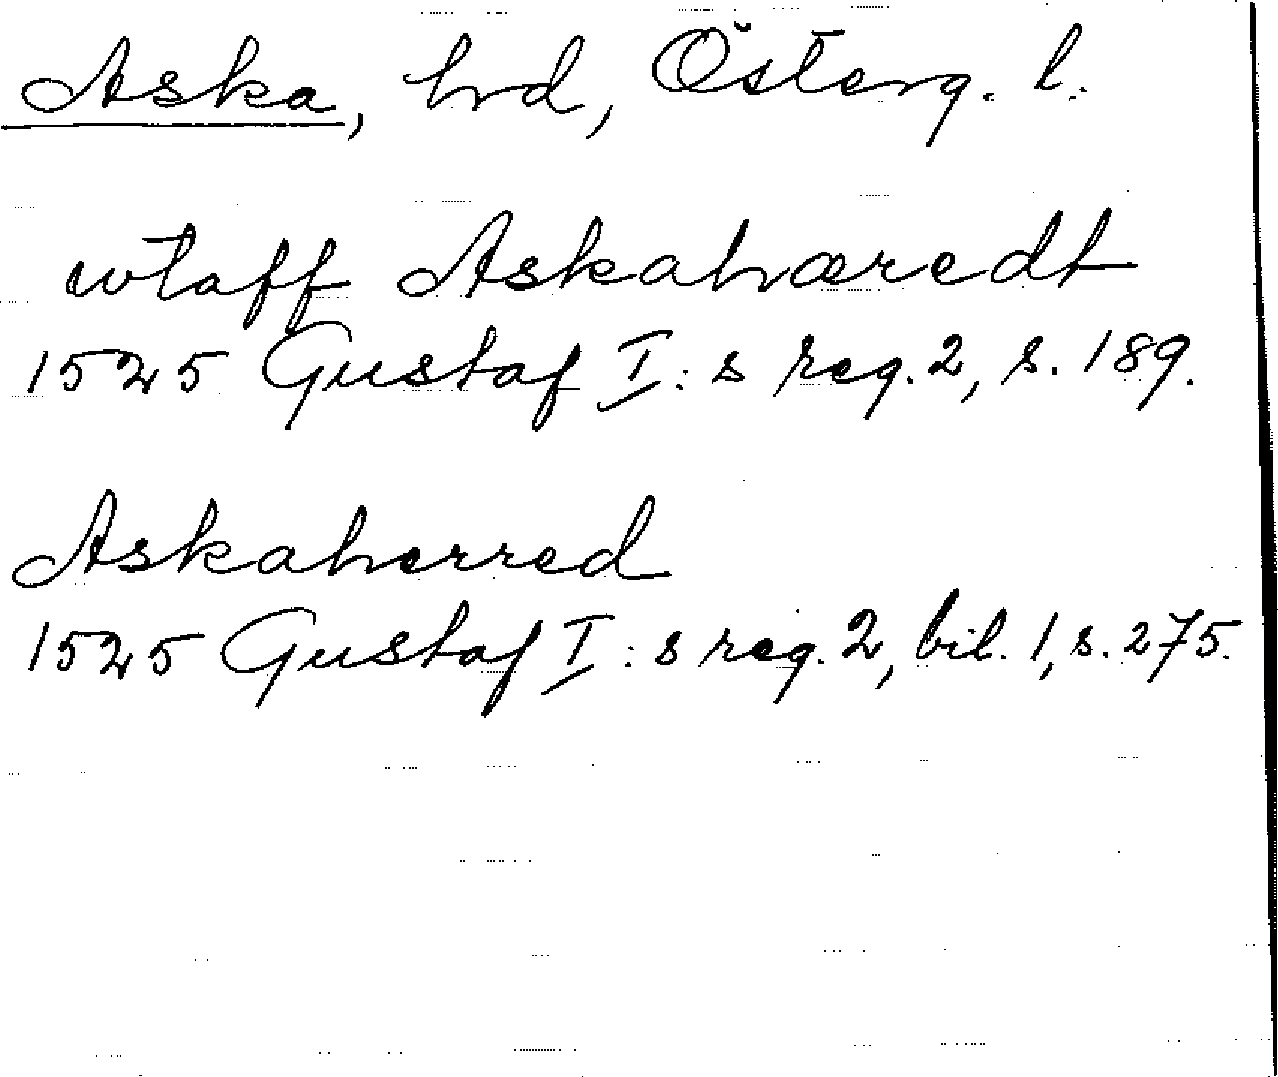 Aska, hrd, Österg. l.
wtaff Askahæredt
1525 Gustaf I:s reg. 2, s. 189.
Askaherred
1525 Gustaf I:s reg. 2, bil. 1, s. 275.